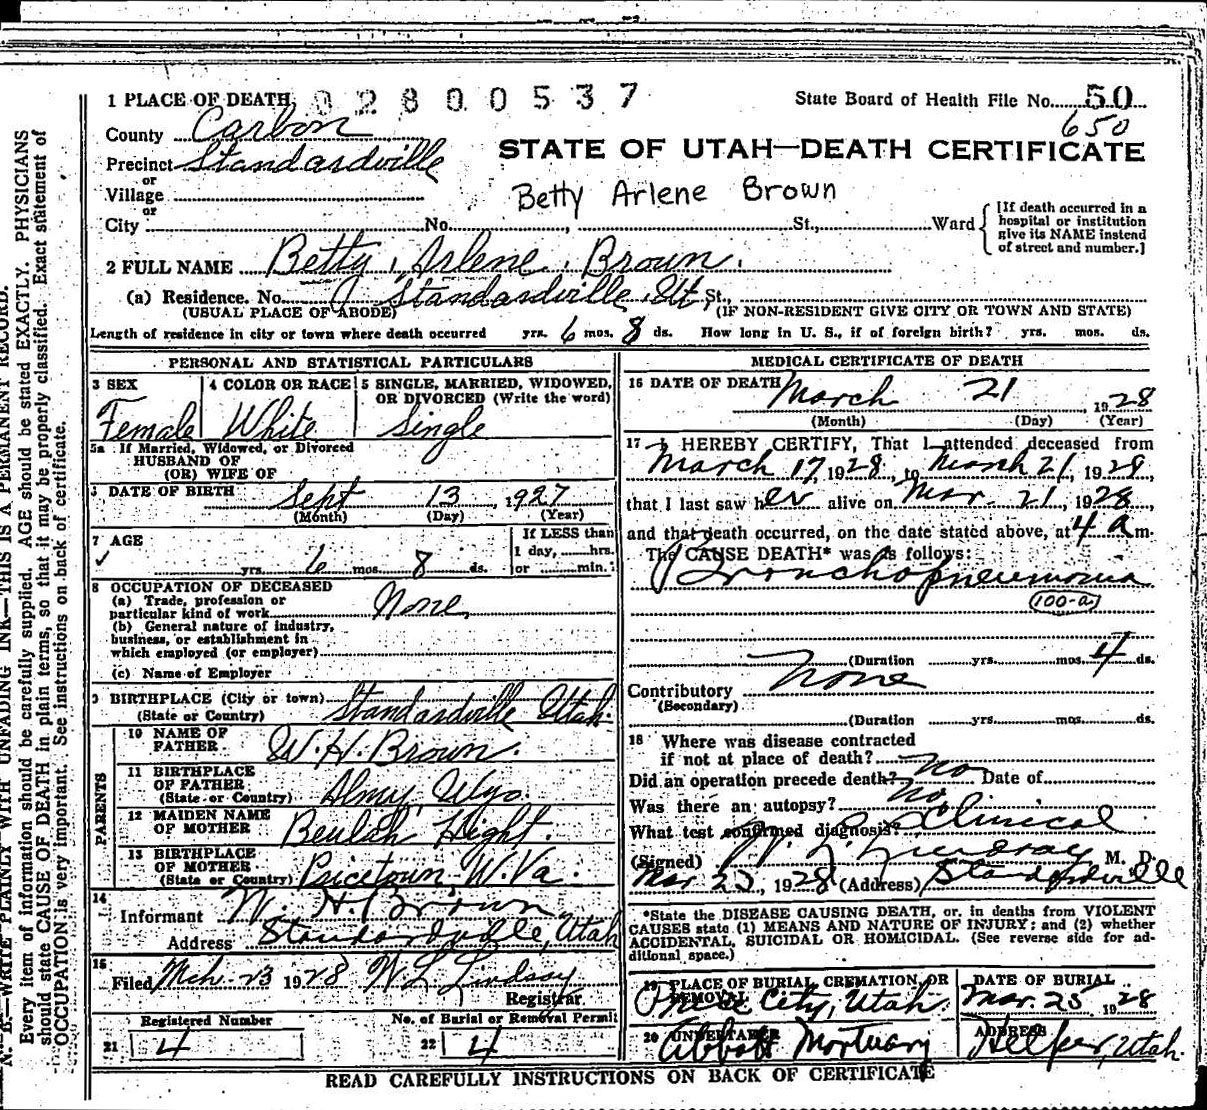 1 PLACE OF DEATH 02800537 State Board of Health File No. 50
650
County Carbon
Precinct Standardville
STATE OF UTAH—DEATH CERTIFICATE
or
Village
Betty Arlene Brown
or
City No. St., Ward
[If death occurred in a hospital or institution give its NAME instead of street and number.]
2 FULL NAME Betty Arlene Brown.
(a) Residence. No. Standardville Ut, St.,
(USUAL PLACE OF ABODE) (IF NON-RESIDENT GIVE CITY OR TOWN AND STATE)
Length of residence in city or town where death occurred yrs. 6 mos. 8 ds. How long in U. S., if of foreign birth? yrs. mos. ds.
PERSONAL AND STATISTICAL PARTICULARS
3 SEX
Female
4 COLOR OR RACE
White
5 SINGLE, MARRIED, WIDOWED,
OR DIVORCED (Write the word)
Single
5a If Married, Widowed, or Divorced
HUSBAND OF
(OR) WIFE OF
DATE OF BIRTH Sept 13, 1927
(Month) (Day) (Year)
7 AGE
yrs. 6 mos. 8 ds.
If LESS than
1 day, hrs.
or min.
8 OCCUPATION OF DECEASED
(a) Trade, profession or
particular kind of work None
(b) General nature of industry,
business, or establishment in
which employed (or employer)
(c) Name of Employer
9 BIRTHPLACE (City or town) Standardville Utah.
(State or Country)
PARENTS
10 NAME OF
FATHER W. H. Brown.
11 BIRTHPLACE
OF FATHER
(State or Country) Almy, Wyo.
12 MAIDEN NAME
OF MOTHER Beulah Hight.
13 BIRTHPLACE
OF MOTHER
(State or Country) Pricetown W. Va.
14
Informant W. H. Brown
Address Standardville, Utah
15
Filed Mch. 23 1928 W L Lindsay
Registrar
Registered Number
21 4
No. of Burial or Removal Permit
22 4
MEDICAL CERTIFICATE OF DEATH
16 DATE OF DEATH March 21, 1928
(Month) (Day) (Year)
17 I HEREBY CERTIFY, That I attended deceased from
March 17, 1928, to March 21, 1928,
that I last saw her alive on Mar. 21, 1928,
and that death occurred, on the date stated above, at 4 a m.
The CAUSE DEATH* was as follows:
Bronchopneumonia
(100-a)
(Duration yrs. mos. 4 ds.
Contributory None
(Secondary)
(Duration yrs. mos. ds.
18 Where was disease contracted
if not at place of death?
Did an operation precede death? no Date of
Was there an autopsy? no
What test confirmed diagnosis? Clinical
(Signed) W. L. Lindsay M. D.
Mar 23, 1928 (Address) Standardville
*State the DISEASE CAUSING DEATH, or, in deaths from VIOLENT
CAUSES state (1) MEANS AND NATURE OF INJURY; and (2) whether
ACCIDENTAL, SUICIDAL OR HOMICIDAL. (See reverse side for ad-
ditional space.)
19 PLACE OF BURIAL CREMATION, OR
REMOVAL
Price City, Utah.
DATE OF BURIAL
Mar. 23 1928
20 UNDERTAKER
Abbott Mortuary
ADDRESS
Helper, Utah.
READ CAREFULLY INSTRUCTIONS ON BACK OF CERTIFICATE
N. B.—WRITE PLAINLY WITH UNFADING INK—THIS IS A PERMANENT RECORD.
Every item of information should be carefully supplied. AGE should be stated EXACTLY. PHYSICIANS
should state CAUSE OF DEATH in plain terms, so that it may be properly classified. Exact statement of
OCCUPATION is very important. See instructions on back of certificate.